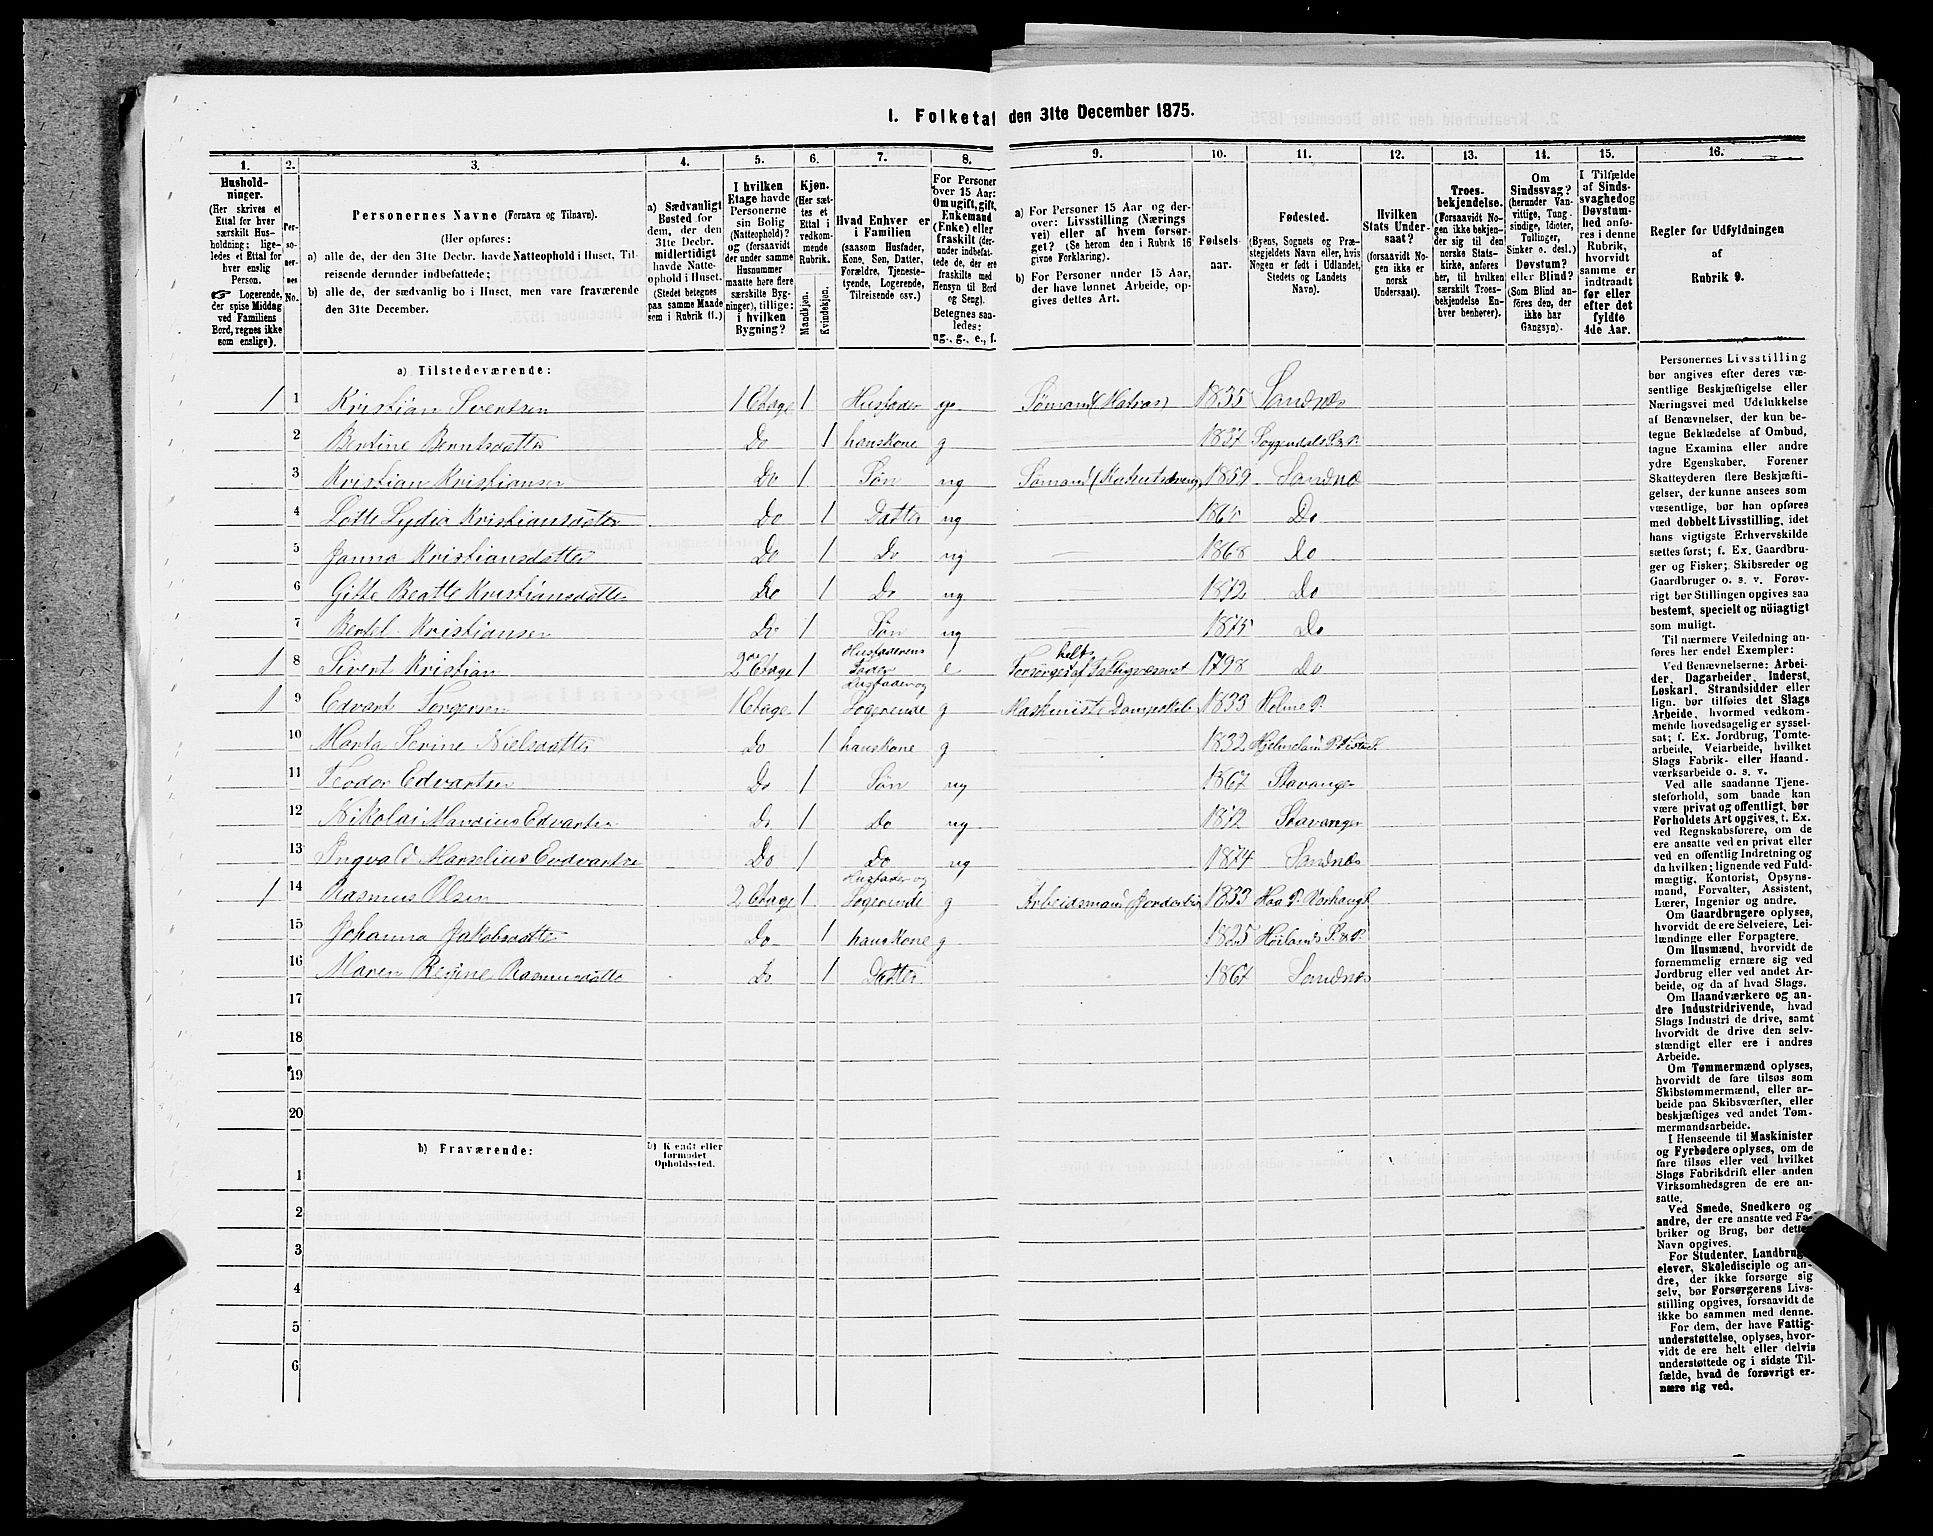 1. Folketal den 31te December 1875.
1. 2. 3. 4. 5. 6. 7. 8. 9. 10. 11. 12. 13. 14. 15. 16.
Hushold-
ninger.
(Her skrives et
Ettal for hver
særskilt Hus-
holdning; lige-
ledes et Ettal for
hver enslig
Person.
☞ Logerende,
der spise Middag
ved Familiens
Bord, regnes ikke
som enslige).
Per-
so-
ner-
nes
No.
Personernes Navne (Fornavn og Tilnavn).
(Her opføres:
a) alle de, der den 31te Decbr. havde Natteophold i Huset, Til-
reisende derunder indbefattede;
b) alle de, der sædvanlig bo i Huset, men vare fraværende
den 31te December.
a) Sædvanligt
Bosted for
dem, der den
31te Decbr.
midlertidigt
havde Natte-
ophold i Huset.
(Stedet betegnes
paa samme Maade
som i Rubrik 11.)
I hvilken
Etage havde
Personerne
sin Bolig
(Natteophold)?
og (forsaavidt
der under samme
Husnummer
maatte høre flere
særskilte Byg-
ninger), tillige:
i hvilken
Bygning?
Kjøn.
(Her sæt-
tes et
Ettal i
vedkom-
mende
Rubrik.
Mandkjøn.
Kvindekjøn.
Hvad Enhver er
i Familien
(saasom Husfader,
Kone, Søn, Datter,
Forældre, Tjeneste-
tyende, Logerende,
Tilreisende osv.)
For Personer
over 15 Aar:
Om ugift, gift,
Enkemand
(Enke) eller
fraskilt (der-
under indbefat-
tede de, der ere
fraskilte med
Hensyn til Bord
og Seng).
Betegnes saa-
ledes:
ug., g., e., f.
a) For Personer 15 Aar og der-
over: Livsstilling (Nærings
vei) eller af hvem forsør-
get? (Se herom den i Rubrik 16
givne Forklaring).
b) For Personer under 15 Aar,
der have lønnet Arbeide, op-
gives dettes Art.
Fødsels-
aar.
Fødested.
(Byens, Sognets og Præ-
stegjeldets Navn eller, hvis
Nogen er født i Udlandet,
Stedets og Landets
Navn).
Hvilken
Stats Under-
saat?
(forsaavidt No-
gen ikke er
norsk
Undersaat).
Troes-
bekjendelse.
(Forsaavidt No-
gen ikke bekjen-
der sig til den
norske Stats-
kirke, anføres
her, til hvilken
særskilt Troes-
bekjendelse En-
hver henhører).
Om
Sindssvag?
(herunder Van-
vittige, Tung-
sindige, Idioter,
Tullinger,
Sinker o. desl.)
Døvstum?
eller Blind?
(Som Blind an-
føres den, der
ikke har
Gangsyn).
I Tilfælde
af Sinds-
svaghed og
Døvstum-
hed anfø-
res i denne
Rubrik,
hvorvidt
samme er
indtraadt
før eller
efter det
fyldte
4de Aar.
Regler for Udfyldningen
af
Rubrik 9.
a) Tilstedeværende:
1 1 Kristian Svertsen 1 Etage 1 Husfader g 1835 Sandnæs
2 Bertine Berntsdatter Do 1 hans kone g 1837 Soggendals S. & P.
3 Kristian Kristiansen Do 1 Søn ug 1859 Sandnæs
4 Lotte Lydia Kristiansdatter Do 1 Datter ug Do
5 Janna Kristiansdatter Do 1 Do ug 1868 Do
6 Gitte Beatte Kristiansdatter Do 1 Do ug 1872 Do
7 Bertel Kristiansen Do 1 Søn ug 1875 Do
1 8 Sivert Kristian 2 Etage 1 Husfaderens Fader e Forsørges helt af Fattigvæsnet 1798 Do
1 9 Edvart Torgersen 1 Etage 1 Husfader og Logerende g Maskinist Dampskib 1833 Holme P.
10 Marta Serine Nielsdatter Do 1 hans kone g 1832
11 Teodor Edvartsen Do 1 Søn ug 1867 Stavanger
12 Nikolai Mandius Edvartsen Do 1 Do ug 1872 Stavanger
13 Ingvald Marselius Edvartsen Do 1 Do ug 1874 Sandnæs
1 14 Rasmus Olsen 2 Etage 1 Husfader og Logerende g Arbeidsmand 1833 Haa P.
15 Johanna Jakobsdatter Do 1 hans kone g 1825 Høilands S. & P.
16 Maren Regine Rasmusdatter Do 1 Datter 1867 Sandnæs
17
18
19
20
b) Fraværende:
b) Kjendt eller
formodet
Opholdssted.
1
2
3
4
5
6
Personernes Livsstilling
bør angives efter deres væ-
sentlige Beskjæftigelse eller
Næringsvei med Udelukkelse
af Benævnelser, der kun be-
tegne Beklædelse af Ombud,
tagne Examina eller andre
ydre Egenskaber. Forener
Skatteyderen flere Beskjæfti-
gelser, der kunne ansees som
væsentlige, bør han opføres
med dobbelt Livsstilling, idet
hans vigtigste Erhvervskilde
sættes først; f. Ex. Gaardbru-
ger og Fisker; Skibsreder og
Gaardbruger o. s. v. Forøv-
rigt bør Stillingen opgives saa
bestemt, specielt og nöiagtigt
som muligt.
Til nærmere Veiledning an-
føres her endel Exempler:
Ved Benævnelserne: Arbei-
der, Dagarbeider, Inderst,
Løskarl, Strandsidder eller
lign. bør tilføies det Slags
Arbeide, hvormed vedkom-
mende hovedsagelig er syssel-
sat; f. Ex. Jordbrug, Tomte-
arbeide, Veiarbeide, hvilket
Slags Fabrik- eller Haand-
værksarbeide o. s. v.
Ved alle saadanne Tjene-
steforhold, som baade kan
være privat og offentligt, bør
Forholdets Art opgives, t. Ex.
ved Regnskabsførere, om de
ere ansatte ved en privat eller
ved en offentlig Indretning og
da hvilken; lignende ved Fuld-
mægtig, Kontorist, Opsyns-
mand, Forvalter, Assistent,
Lærer, Ingeniør og andre.
Om Gaardbrugere opløses,
hvorvidt de ere Selveiere, Lei-
lændinge eller Forpagtere.
Om Husmænd, hvorvidt de
fornemmelig ernære sig ved
Jordbrug eller ved andet Ar-
beide, og da af hvad Slags.
Om Haandværkere og an-
dre Industridrivende, hvad
Slags Industri de drive, samt
hvorvidt de drive den selv-
stændigt eller ere i andres
Arbeide.
Om Tømmermænd oplyses,
hvorvidt de fare tilsøs som
Skibstømmermænd, eller ar-
beide paa Skibsværfter, eller
beskjæftiges ved andet Tøm-
mermandsarbeide.
I Henseende til Maskinister
og Fyrbødere oplyses, om de
fare tilsøs eller ved hvilket
Slags Fabrikdrift eller anden
Virksomhedsgren de ere an-
satte.
Ved Smede, Snedkere og
andre, der ere ansatte ved Fa-
briker og Brug, bør dettes
Navn opgives.
For Studenter, Landbrugs-
elever, Skoledisciple og an-
dre, der ikke forsørge sig
selv, bør Forsørgerens Livs-
stilling opgives, forsaavidt de
ikke bo sammen med denne.
For dem, der have Fattig-
understøttelse, oplyses, hvor-
vidt de ere helt eller delvis
understøttede og i sidste Til-
fælde, hvad de forøvrigt er-
nære sig ved.